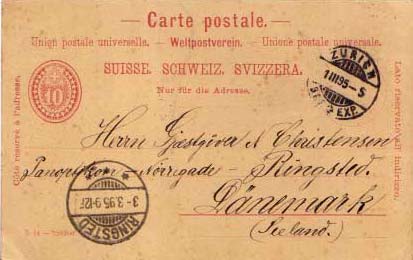 Carte postale.
Union postale universelle. — Weltpostverein. — Unione postale universale.
SUISSE. SCHWEIZ. SVIZZERA.
Nur für die Adresse.
Côté réservé à l'adresse.
Lato riservato all'indirizzo.
10
ZÜRICH
1 III 95 - 5
EXP.
Herrn Gjæstgiver N Christensen
Panoptikon Nörregade - Ringsted.
Dänemark
(Seeland.)
RINGSTED
3-3.95 9-12F